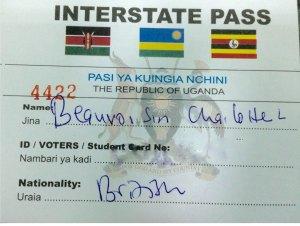 INTERSTATE PASS
PASI YA KUINGIA NCHINI
THE REPUBLIC OF UGANDA
4422
Name: Beauvoisin Charlotte L
Jina
ID / VOTERS / Student Card No:
Nambari ya kadi
Nationality: British
Uraia